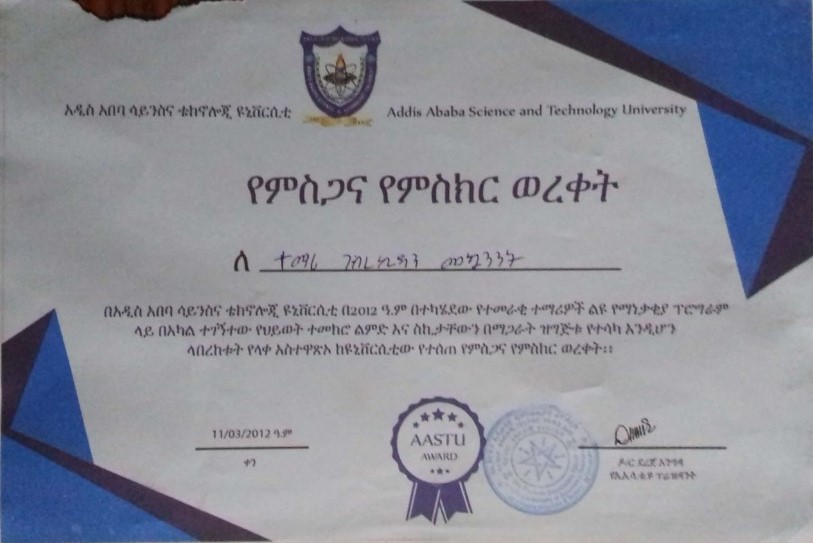 አዲስ አበባ ሳይንስና ቴክኖሎጂ ዩኒቨርሲቲ
Addis Ababa Science and Technology University
የምስጋና የምስክር ወረቀት
ለ ተማሪ
በአዲስ አበባ ሳይንስና ቴክኖሎጂ ዩኒቨርሲቲ በ2012 ዓ.ም በተካሄደው የተመራቂ ተማሪዎች ልዩ የማነቃቂያ ፕሮግራም
ላይ በአካል ተገኝተው የህይወት ተመክሮ ልምድ እና ስኬታቸውን በማጋራት ዝግጅቱ የተሳካ እንዲሆን
ላበረከቱት የላቀ አስተዋጽኦ ከዩኒቨርሲቲው የተሰጠ የምስጋና የምስክር ወረቀት፡፡
11/03/2012 ዓ.ም
ቀን
AASTU
AWARD
ዶ/ር ደረጀ እንግዳ
የአአሳቴዩ ፕሬዝዳንት